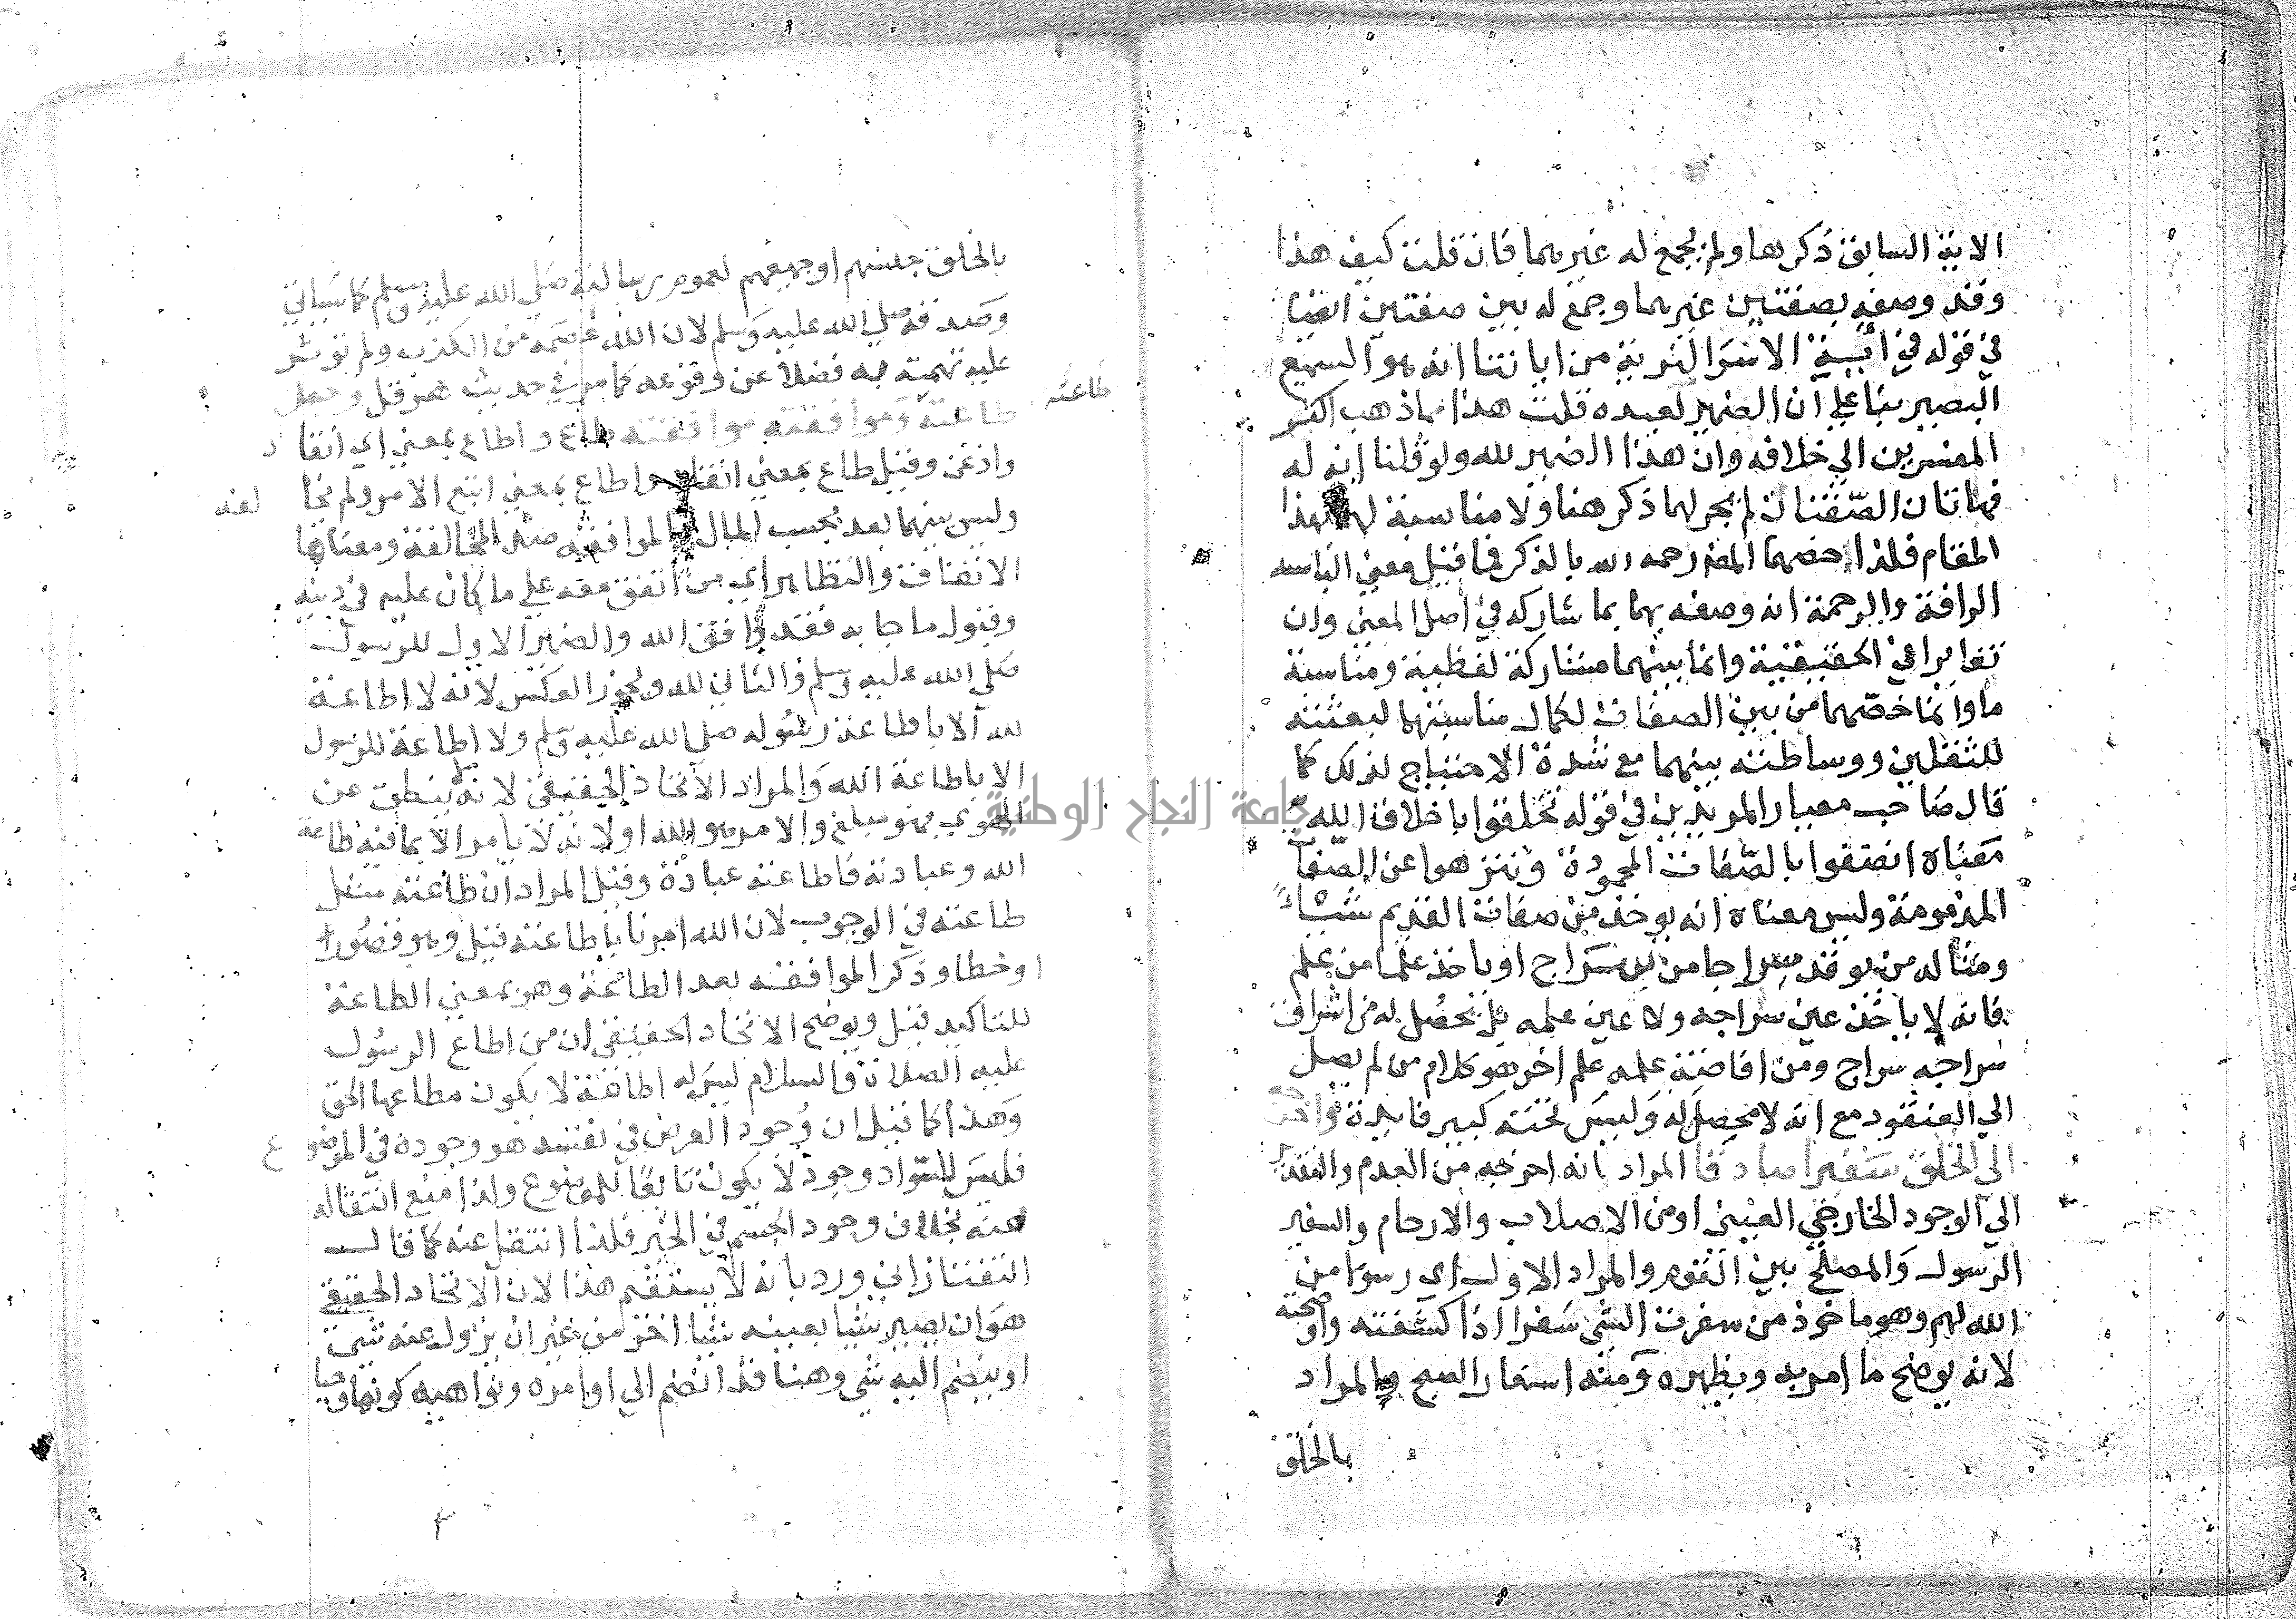 الاية السابق ذكرها ولم يجمع له غيرهما فان قلت كيف هذا
وقد وصفه بصفتين غيرهما وجمع له بين صفتين ايضا
في قوله في اية الاسرا لنريه من اياتنا انه هو السميع
البصير بنا علي ان الضمير لعبده قلت هذا مما ذهب اكثر
المفسرين الي خلافه وان هذا الضمير لله ولو قلنا انه له
فهاتان الصفتان لم يجر لهما ذكر هنا ولا مناسبة لهما بهذا
المقام فلذا خصهما المص رحمه الله بالذكر فما قيل معني الباسه
الرافة والرحمة انه وصفه بهما بما شاركه في اصل المعني وان
تغايرا في الحقيقية وانما بينهما مشاركة لفظية ومناسبة
ما وانما خصهما من بين الصفات لكمال مناسبتهما لبعثته
للثقلين ووساطته بينهما مع شدة الاحتياج لذلك كما
قال صاحب معيار المريدين في قوله تخلقوا باخلاق الله
معناه اتصفوا بالصفات المحمودة وتنزهوا عن الصفا
المذمومة وليس معناه انه يوخذ من صفات القديم شياء
ومثاله من يوقد سراجا من سراج او ياخذ علما من علم
فانه لا ياخذ عين سراجه ولا عين علمه بل يحصل له من اشراق
سراجه سراج ومن افاضة علمه علم اخر هو كلام من لم يصل
الي العنقود مع انه لا محصل له وليس تحته كبير فايدة واخرجه
الي الخلق سفيرا صادقا المراد انه اخرجه من العدم والتقدير
الي الوجود الخارجي العيني او من الاصلاب والارحام والسفير
الرسول والمصلح بين القوم والمراد الاول اي رسولا من
الله لهم وهو ماخوذ من سفرت الشي سفرا اذا كشفته واوضحته
لانه يوضح ما امر به ويظهره ومنه اسفار الصبح والمراد
بالخلق
بالخلق جنسهم او جميعهم لعموم رسالته صلي الله عليه وسلم كما سياتي
وصدقه صلي الله عليه وسلم لان الله عصمه من الكذب ولم توثر
عليه تهمته به فضلا عن وقوعه كما مر في حديث هرقل وجعل
طاعته
طاعته وموافقته موافقته طاع واطاع بمعني اي انقاد
واذعن وقيل طاع بمعني انقاد واطاع بمعني اتبع الامر ولم يخالفه
وليس بينهما بعد بحسب المال والموافقة ضد المخالفة ومعناها
الاتفاق والتظاهر اي من اتفق معه علي ما كان عليه في دينه
وقبول ما جا به فقد وافق الله والضمير الاول للرسول
صلي الله عليه وسلم والثاني لله ويجوز العكس لانه لا اطاعة
لله الا باطاعة رسوله صلي الله عليه وسلم ولا اطاعة للرسول
الا باطاعة الله والمراد الاتحاد الحقيقي لانه لا ينطق عن
الهوي فهو مبلغ والامر هو الله او لانه لا يامر الا بما فيه طاعة
الله وعبادته فاطاعته عبادة وقيل المراد ان طاعته مثل
طاعته في الوجوب لان الله امرنا باطاعته قيل وهو قصور
او خطا وذكر الموافقة بعد الطاعة وهو بمعني الطاعة
للتاكيد قيل ويوضح الاتحاد الحقيقي ان من اطاع الرسول
عليه الصلاة والسلام ليس له اطاعة لا يكون مطاعها الحق
وهذا كما قيل ان وجود العرض في نفسه هو وجوده في الموضوع
فليس للسواد وجود لا يكون تابعا للموضوع ولذا منع انتقاله
عنه بخلاف وجود الجسم في الحيز فلذا انتقل عنه كما قال
التفتازاني ورد بانه لا يستقيم هذا لان الاتحاد الحقيقي
هو ان يصير شيا بعينه شيا اخر من غير ان يزول عنه شي
او ينضم اليه شي وهنا قد انضم الي اوامره ونواهيه كونها وحيا
جامعة النجاح الوطنية